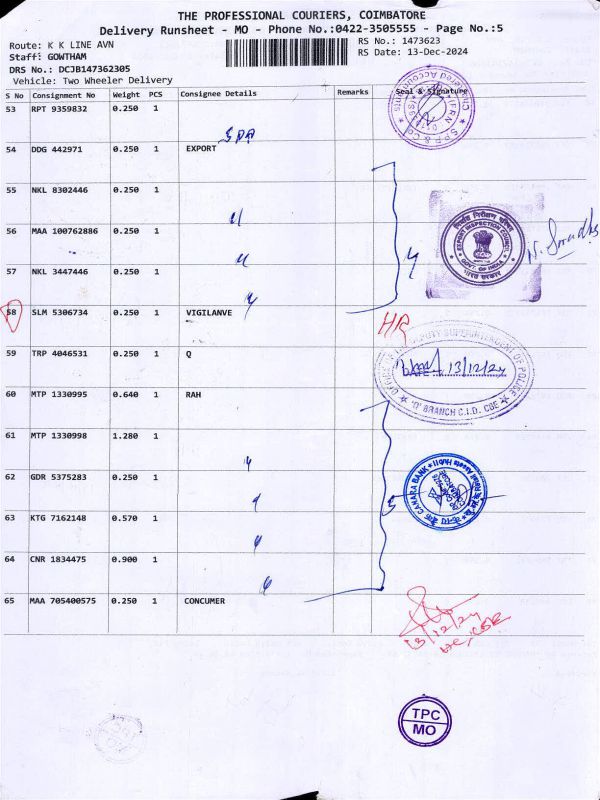 THE PROFESSIONAL COURIERS, COIMBATORE
Delivery Runsheet - MO - Phone No.:0422-3505555 - Page No.:5
Route: K K LINE AVN
RS No.: 1473623
Staff: GOWTHAM
RS Date: 13-Dec-2024
DRS No.: DCJB147362305
Vehicle: Two Wheeler Delivery
S No Consignment No Weight PCS Consignee Details Remarks Seal & Signature
53 RPT 9359832 0.250 1
54 DDG 442971 0.250 1 EXPORT
55 NKL 8302446 0.250 1
56 MAA 100762886 0.250 1
57 NKL 3447446 0.250 1
58 SLM 5306734 0.250 1 VIGILANVE
59 TRP 4046531 0.250 1 Q
60 MTP 1330995 0.640 1 RAH
61 MTP 1330998 1.280 1
62 GDR 5375283 0.250 1
63 KTG 7162148 0.570 1
64 CNR 1834475 0.900 1
65 MAA 705400575 0.250 1 CONCUMER
Chartered Accountants
निर्यात निरीक्षण परिषद
EXPORT INSPECTION COUNCIL
GOVT. OF INDIA
भारत सरकार
4
HR
DEPUTY SUPERINTENDENT OF POLICE
DATE 13/12/24
'Q' BRANCH C.I.D. CBE
CANARA BANK
5
13/12/24
TPC
MO